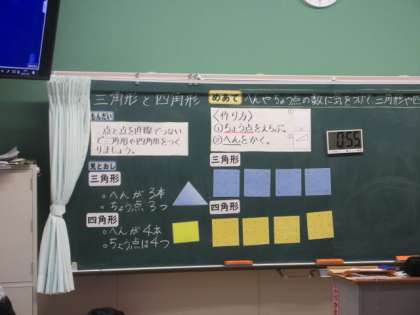 三角形と四角形
めあて へんやちょう点の数に気をつけて、三角形や
もんだい
点と点を直線でつない
で三角形や四角形をつく
りましょう。
見とおし
三角形
○へんが3本
○ちょう点3つ
四角形
○へんが4本
○ちょう点は4つ
〈作り方〉
①ちょう点をえらぶ。
②へんをかく。
三角形
四角形
055